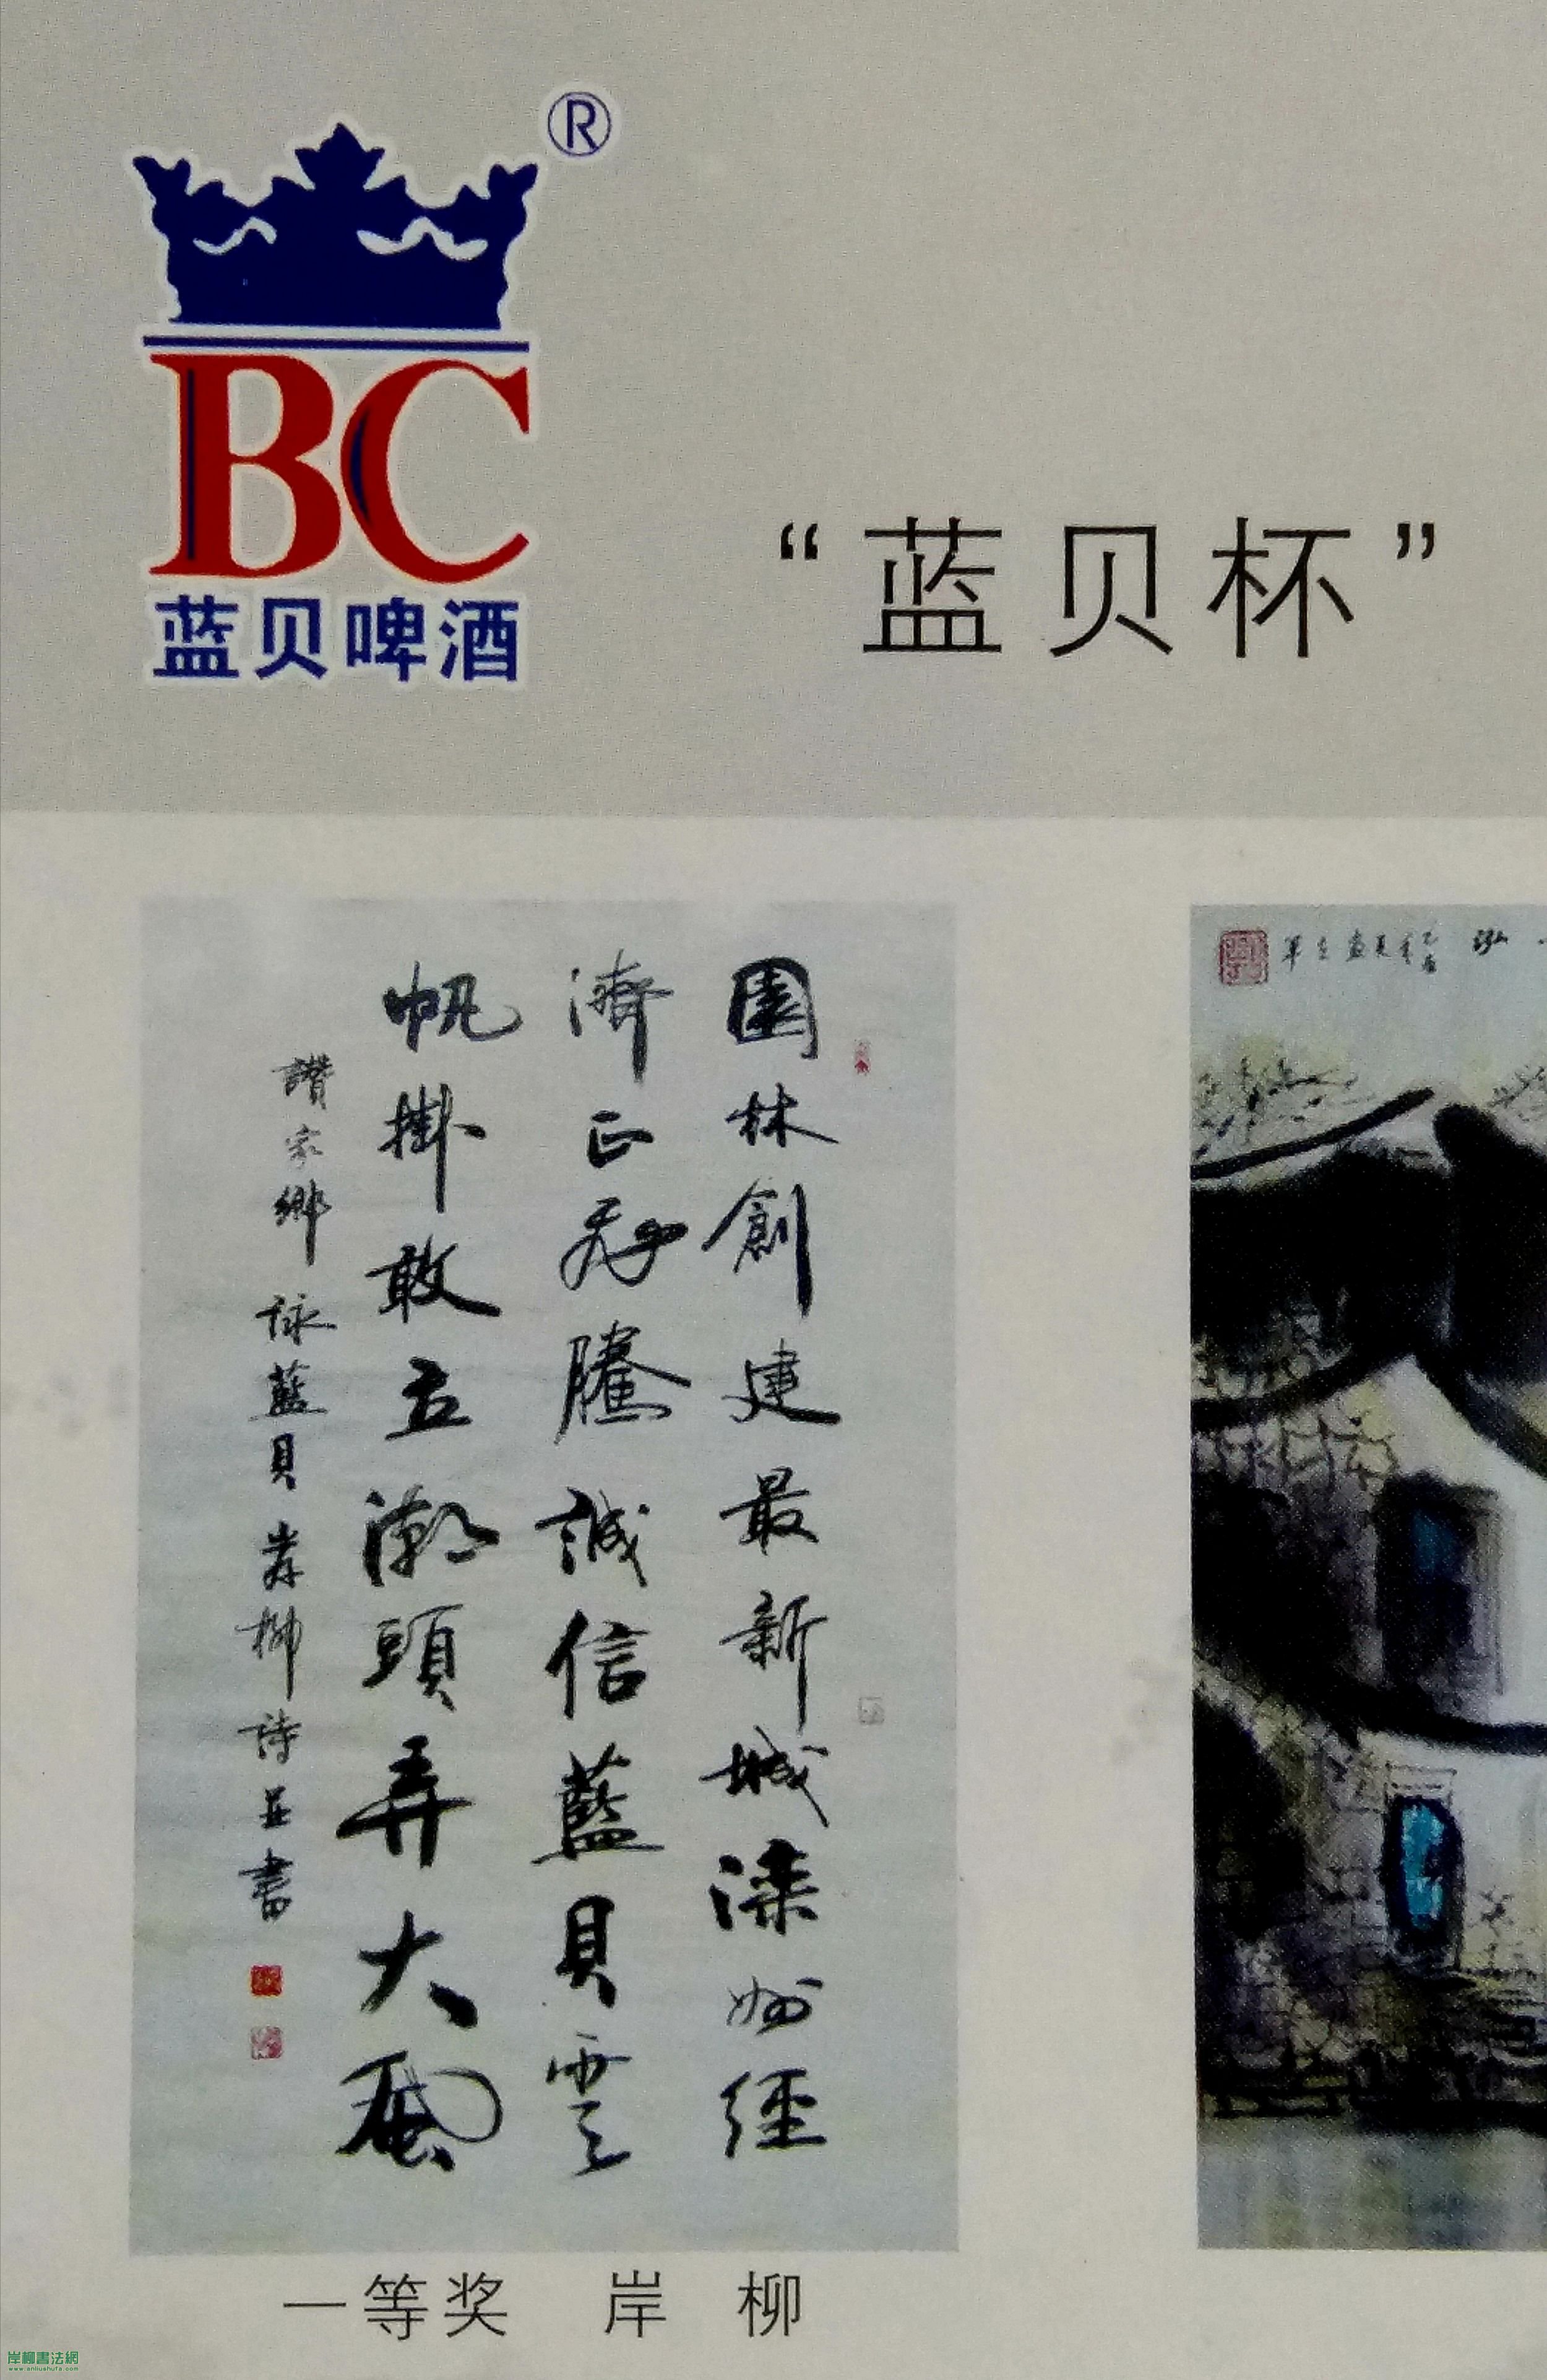 ®
BC
蓝贝啤酒
“蓝贝杯”
園林創建最新城滦州經
濟正飛騰誠信藍貝雲
帆掛敢立潮頭弄大風
讚家鄉詠藍貝岸柳詩並書
一等奖 岸 柳
岸柳書法網
www.anliushufa.com